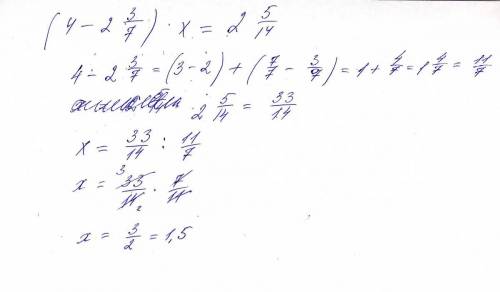 (4 - 2 3/7) · x = 2 5/14
4 - 2 3/7 = (3 - 2) + (7/7 - 3/7) = 1 + 4/7 = 1 4/7 = 11/7
2 5/14 = 33/14
x = 33/14 : 11/7
x = 33/14 · 7/11 3 2
x = 3/2 = 1,5